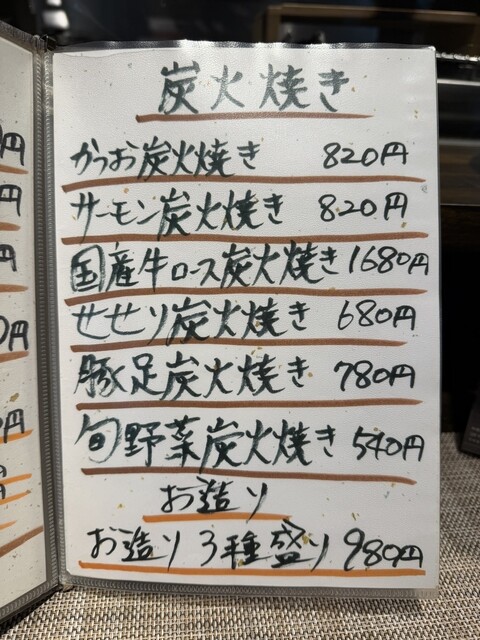 炭火焼き
かつお炭火焼き 820円
サーモン炭火焼き 820円
国産牛ロース炭火焼き 1680円
せせり炭火焼き 680円
豚足炭火焼き 780円
旬野菜炭火焼き 540円
お造り
お造り3種盛り 980円